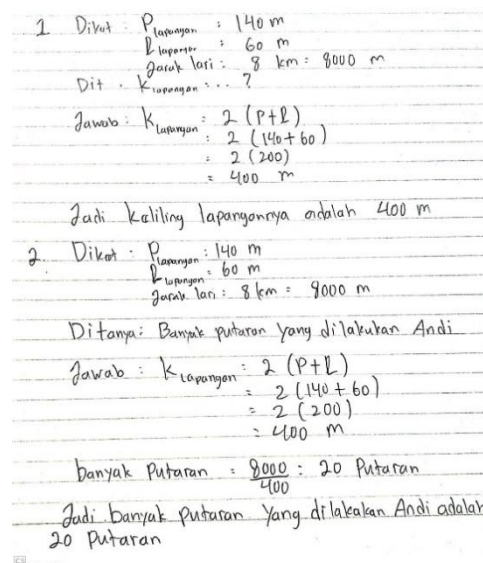 1 Dikat : P lapangan : 140 m
L lapangan : 60 m
Jarak lari : 8 km = 8000 m
Dit . K lapangan : .. ?
Jawab : K Lapangan : 2 (P+L)
: 2 (140+60)
: 2 (200)
= 400 m
Jadi keliling lapangannya adalah 400 m
2. Dikat : P Lapangan : 140 m
L lapangan : 60 m
Jarak lari : 8 km = 8000 m
Ditanya : Banyak putaran yang dilakukan Andi
Jawab : K lapangan : 2 (P+L)
= 2 (140+60)
= 2 (200)
= 400 m
banyak Putaran = 8000/400 : 20 Putaran
Jadi banyak putaran yang dilakakan Andi adalah
20 Putaran
CS